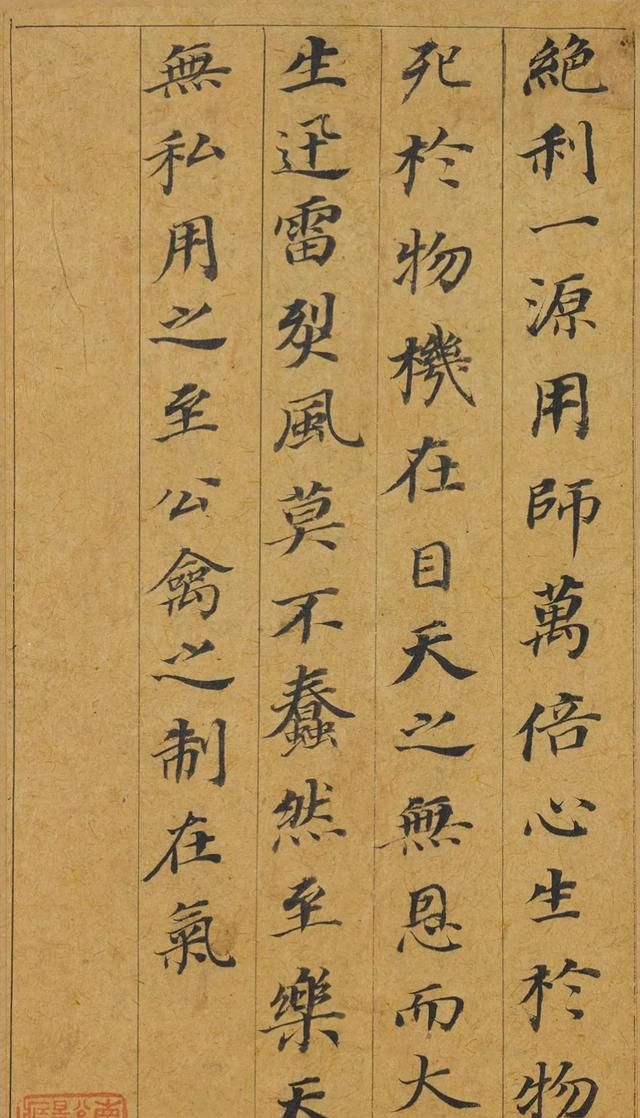 絶利一源用師萬倍心生於物
死於物機在目天之無恩而大
生迅雷烈風莫不蠢然至樂天
無私用之至公禽之制在氣